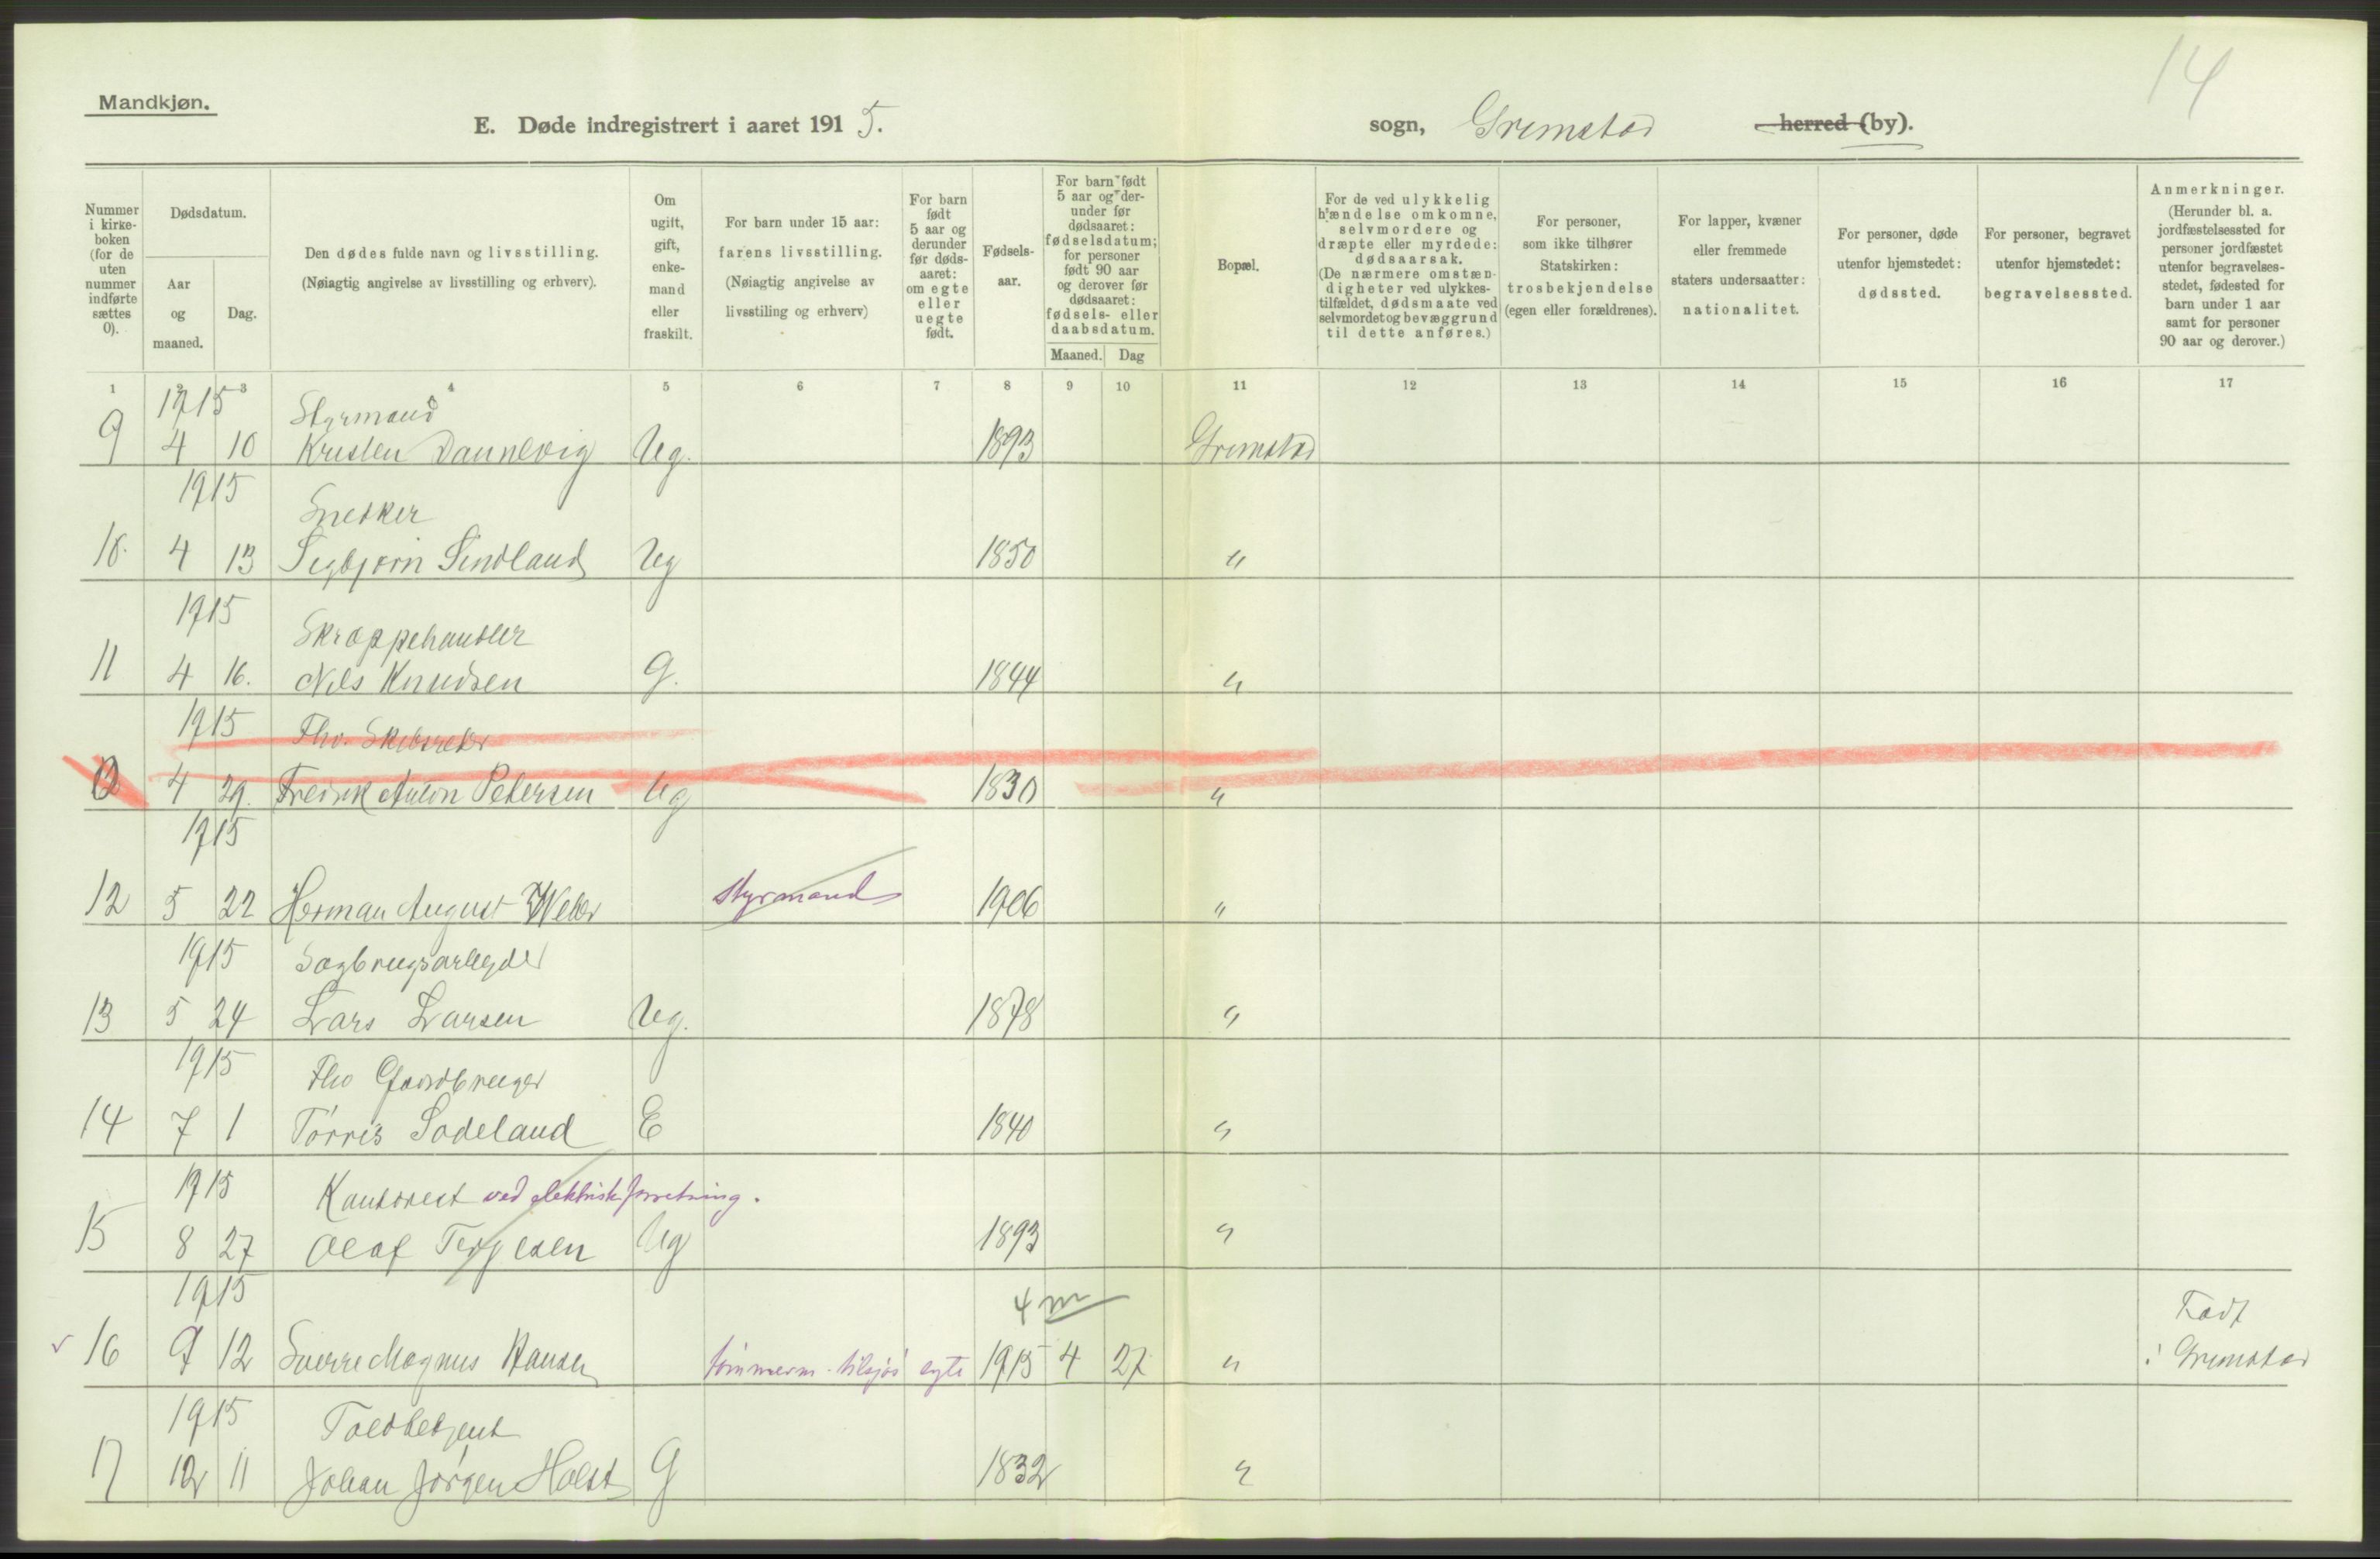 14
Mandkjøn.
E. Døde indregistrert i aaret 1915.
sogn, Grimstad herred (by).
Nummer i kirke-boken (for de uten nummer indførte sættes 0).
Dødsdatum.
Aar og maaned.
Dag.
Den dødes fulde navn og livsstilling.
(Nøiagtig angivelse av livsstilling og erhverv).
Om ugift, gift, enke-mand eller fraskilt.
For barn under 15 aar: farens livsstilling.
(Nøiagtig angivelse av livsstiling og erhverv)
For barn født 5 aar og derunder før døds-aaret: om egte eller uegte født.
Fødsels-aar.
For barn født 5 aar og der-under før dødsaaret: fødselsdatum; for personer født 90 aar og derover før dødsaaret: fødsels- eller daabsdatum.
Maaned. Dag
Bopæl.
For de ved ulykkelig hændelse omkomne, selvmordere og dræpte eller myrdede: dødsaarsak.
(De nærmere omstæn-digheter ved ulykkes-tilfældet, dødsmaate ved selvmordet og bevæggrund til dette anføres.)
For personer, som ikke tilhører Statskirken: trosbekjendelse (egen eller forældrenes).
For lapper, kvæner eller fremmede staters undersaatter: nationalitet.
For personer, døde utenfor hjemstedet: dødssted.
For personer, begravet utenfor hjemstedet: begravelsessted.
Anmerkninger.
(Herunder bl. a. jordfæstelsessted for personer jordfæstet utenfor begravelses-stedet, fødested for barn under 1 aar samt for personer 90 aar og derover.)
1 2 3 4 5 6 7 8 9 10 11 12 13 14 15 16 17
1915 Styrmand
9 4 10 Kristen Dannevig Ug. 1893 Grimstad
1915 Snedker
10. 4 13 Sigbjørn Sindland Ug 1850 "
1915 Skrappehandler
11 4 16. Nils Knudsen G. 1844 "
1915 Fhv. Skibsreder
0 4 29. Fredrik Anton Petersen Ug 1830 "
1915
12 5 22 Herman August Weber styrmand 1906 "
1915 Sagbrugsarbeyder
13 5 24 Lars Larsen Ug. 1878 "
1915 Fhv Gaardbruger
14 7 1 Tørris Sødeland E 1840 "
1915 Kontorist ved elektrisk forretning.
15 8 27 Olaf Terjesen Ug 1893 "
1915 4 m Født
16 9 12 Sverre Magnus Hansen tømmerm. tilsjøs egte 1915 4 27 " i Grimstad
1915 Toldbetjent
17 12 11 Johan Jørgen Holst G 1832 "